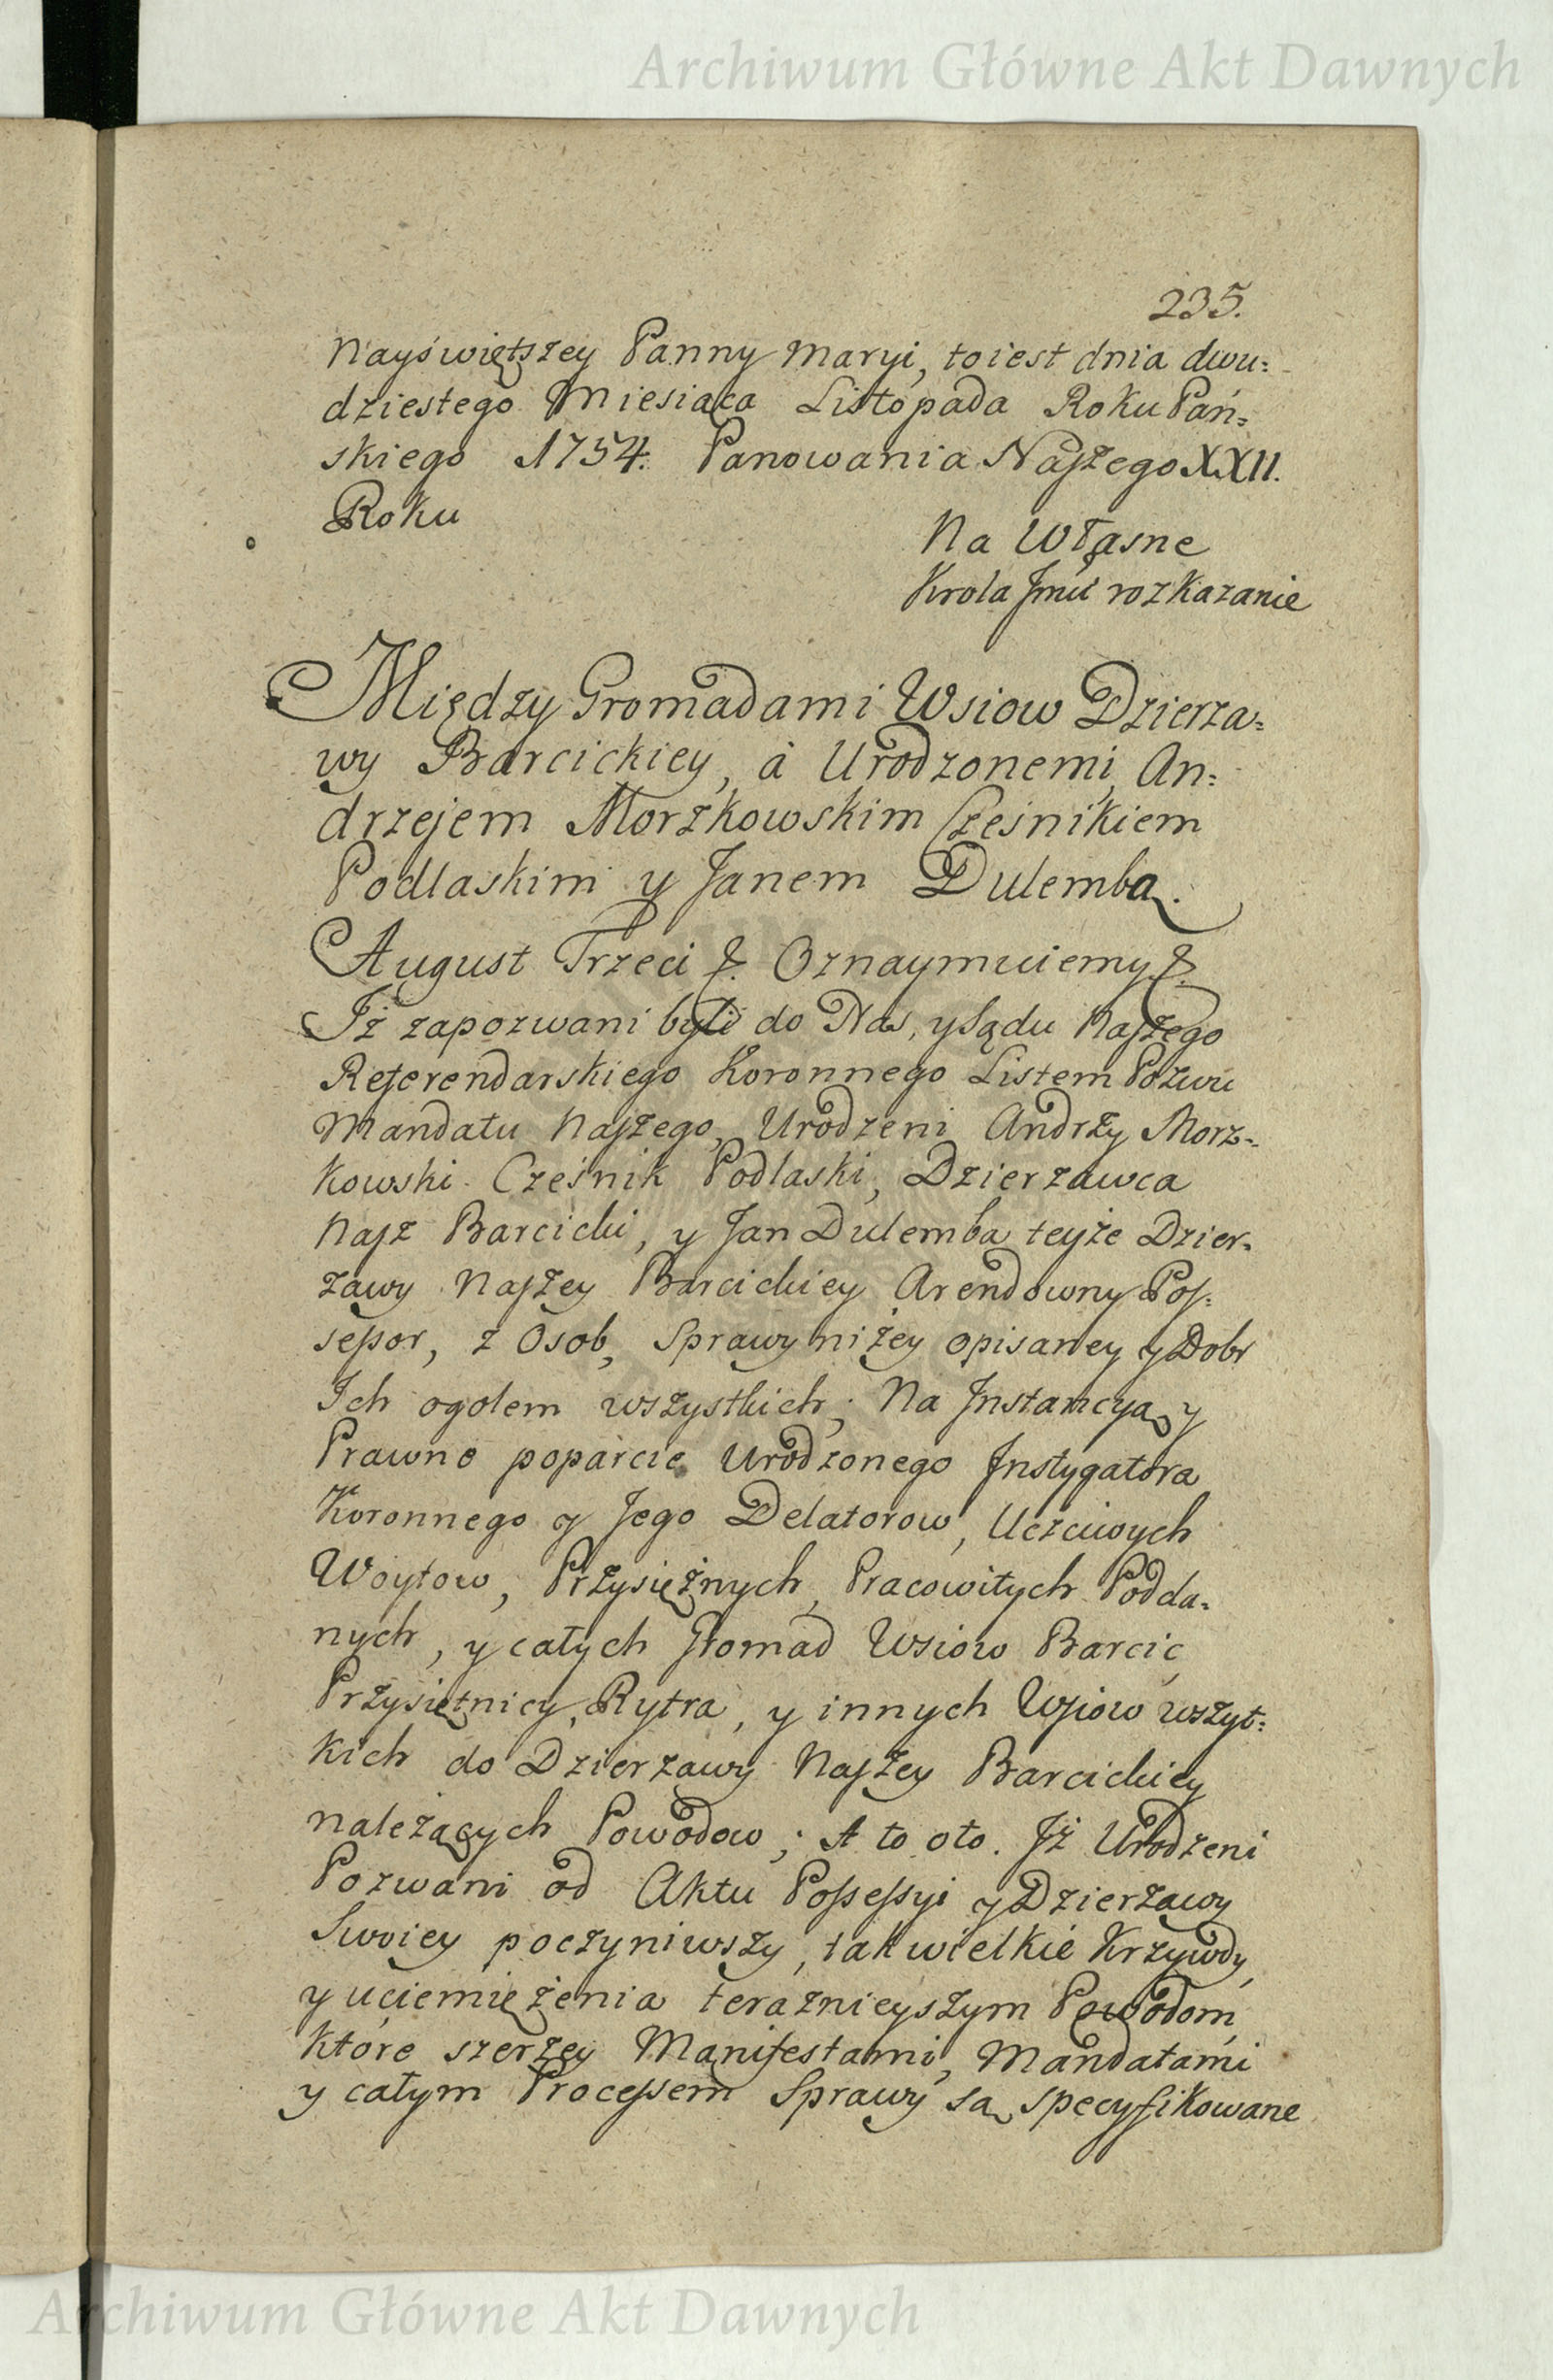 Archiwum Główne Akt Dawnych
235.
Nayświętszey Panny Maryi, toiest dnia dwu=
dziestego Miesiąca Listopada Roku Pań=
skiego 1754. Panowania Naſzego XXII.
Roku
Na Własne
Krola Jmći rozkazanie
Między Gromadami Wsiow Dzierza=
wy Barcickiey, à Urodzonemi An=
drzejem Morzkowskim Cześnikiem
Podlaskim y Janem Dulembą.
August Trzeci &. Oznaymuiemy &.
Iż zapozwani byli do Nas, y Sądu Naſzego
Referendarskiego Koronnego Listem Pozwu
Mandatu Naſzego, Urodzeni Andrzy Morz=
kowski Cześnik Podlaski, Dzierzawca
Naſz Barcicki, y Jan Dulemba teyże Dzier=
zawy Naſzey Barcickiey Arendowny Poſ=
seſsor, z Osob, Sprawy niżey opisaney y Dobr
Ich ogolem wszystkich; Na Instancyą y
Prawne poparcie Urodzonego Instygatora
Koronnego y Jego Delatorow, Uczciwych
Woytow, Przysiężnych, Pracowitych Podda=
nych, y całych Gromad Wsiow Barcic,
Przysietnicy, Rytra, y innych Wſiow wszyt=
kich do Dzierzawy Naſzey Barcickiey
należących Powodow; A to oto. Iż Urodzeni
Pozwani od Aktu Poſseſsyi y Dzierzawy
Swoiey poczyniwszy, tak wielkie Krzywdy,
y uciemiężenia teraznieyszym Powodom,
które szerzey Manifestami, Mandatami
y całym Proceſsem Sprawy są specyfikowane
Archiwum Główne Akt Dawnych